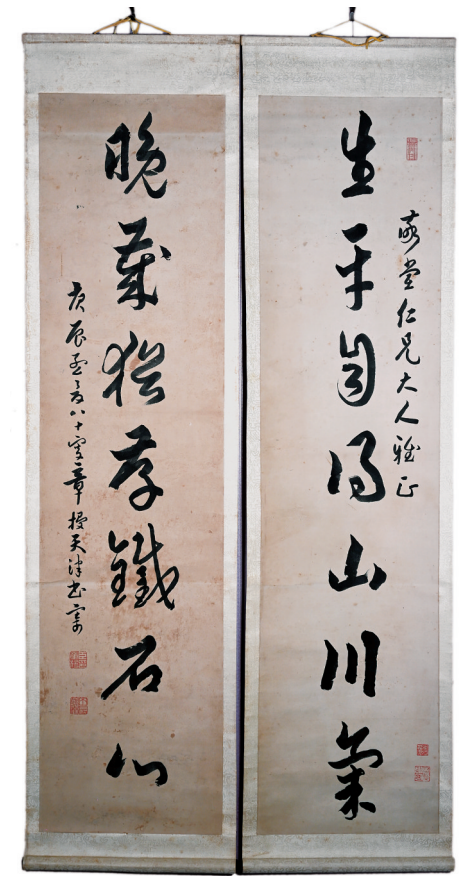 生平自得山川氣
敬堂仁兄大人雅正
晚歲猶存鐵石心
庚辰孟夏八十叟章梫天津書寓